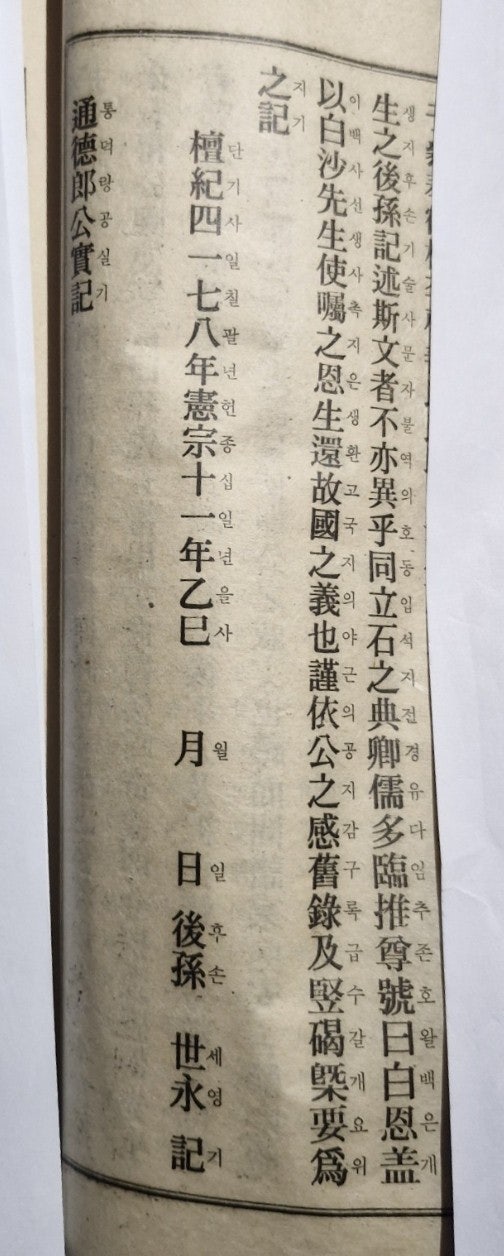 생지후손기술사문자불역의호동입석지전경유다임추존호왈백은개
生之後孫記述斯文者不亦異乎同立石之典卿儒多臨推尊號曰白恩盖
이백사선생사촉지은생환고국지의야근의공지감구록급수갈개요위
以白沙先生使囑之恩生還故國之義也謹依公之感舊錄及竪碣槩要爲
지기
之記
단기사일칠팔년헌종십일년을사 월 일 후손 세영 기
檀紀四一七八年憲宗十一年乙巳 月 日 後孫 世永 記
통덕랑공실기
通德郎公實記